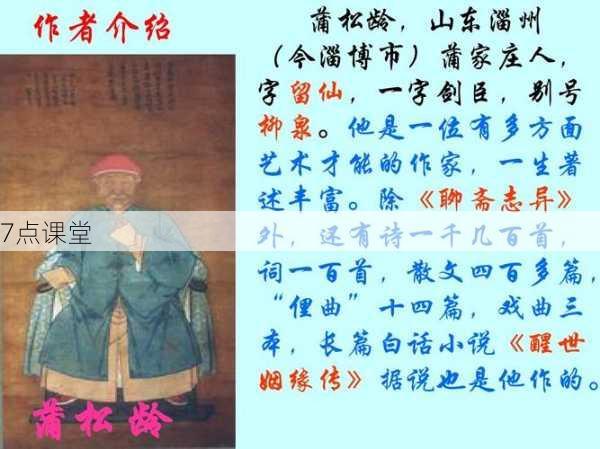 作者介绍
蒲松龄
蒲松龄，山东淄州
（今淄博市）蒲家庄人，
字留仙，一字剑臣，别号
柳泉。他是一位有多方面
艺术才能的作家，一生著
述丰富。除《聊斋志异》
外，还有诗一千几百首，
词一百首，散文四百多篇，
“俚曲”十四篇，戏曲三
本，长篇白话小说《醒世
姻缘传》据说也是他作的。
7点课堂